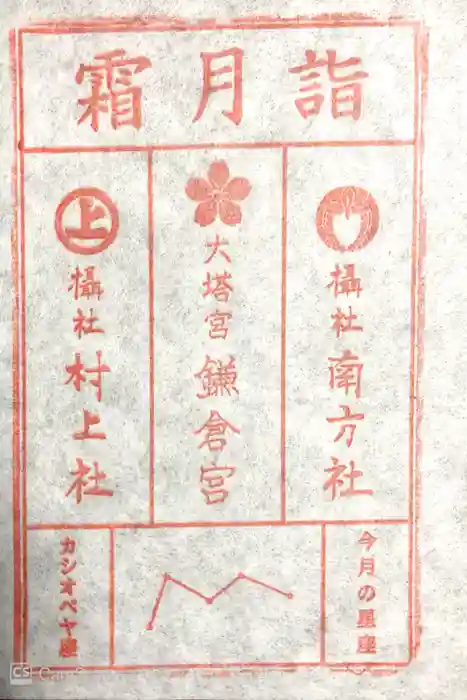 霜月詣
攝社 南方社
大塔宮 鎌倉宮
上
攝社 村上社
今月の星座
カシオペヤ座
CS